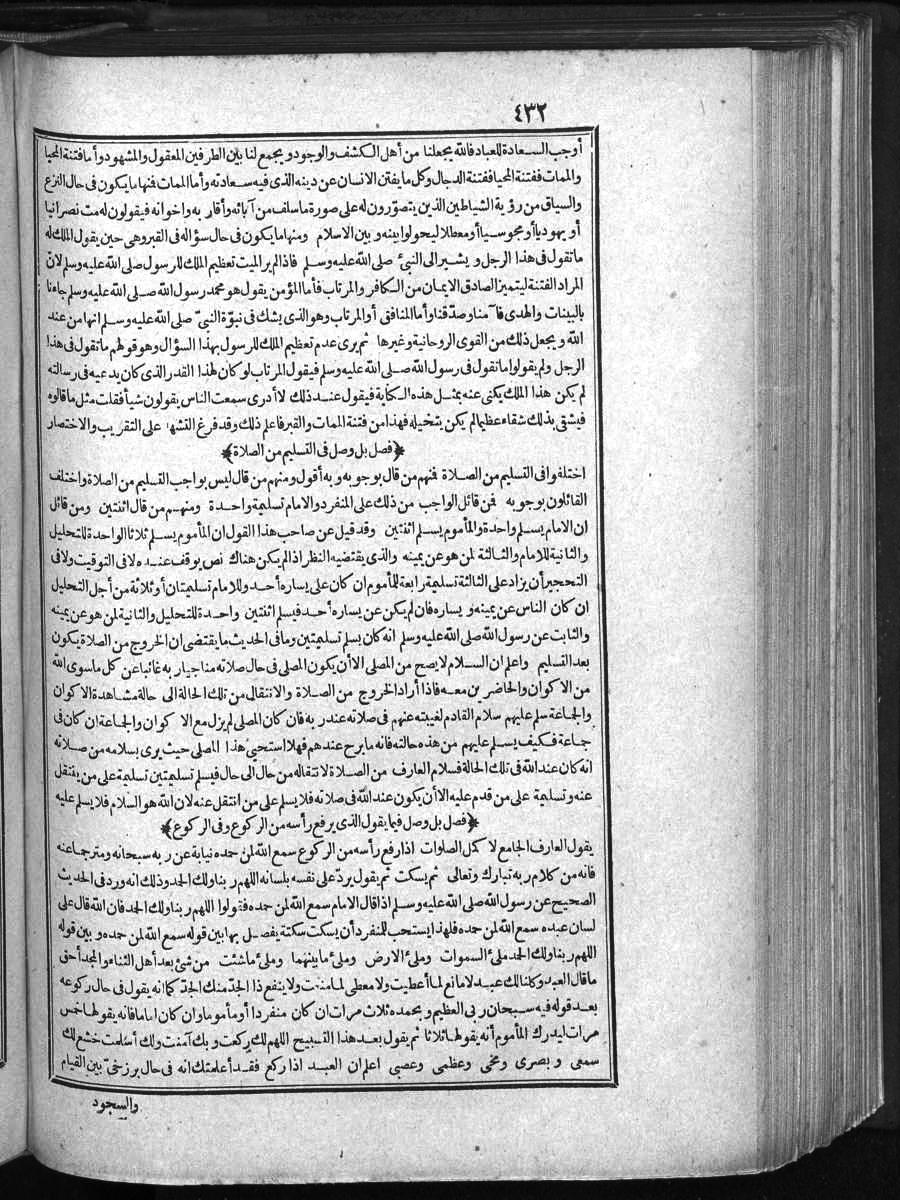 ٤٣٢
أوجب السعادة للعباد فالله يجعلنا من أهل الكشف والوجود ويجمع لنا بين الطرفين المعقول والمشهود وأما فتنة المحيا
والممات ففتنة المحيا ففتنة الدجال وكل ما يفتن الانسان عن دينه الذى فيه سعادته وأما الممات فنها ما يكون فى حال النزع
والسياق من رؤية الشياطين الذين يتصوّرون له على صورة ما سلف من آبائه وأقاربه واخوانه فيقولون له مت نصرانيا
أو يهوديا أو مجوسيا أو معطلا ليحولوا بينه وبين الاسلام ومنها ما يكون فى حال سؤاله فى القبر وهى حين يقول الملك له
ما تقول فى هذا الرجل ويشير الى النبىّ صلى الله عليه وسلم فاذا لم ير الميت تعظيم الملك للرسول صلى الله عليه وسلم لانّ
المراد الفتنة ليتميز الصادق الايمان من الكافر والمرتاب فأما المؤمن يقول هو محمد رسول الله صلى الله عليه وسلم جاءنا
بالبينات والهدى فآمنا وصدّقنا وأما المنافق أو المرتاب وهو الذى يشك فى نبوّة النبىّ صلى الله عليه وسلم انها من عند
الله ويجعل ذلك من القوى الروحانية وغيرها ثم يرى عدم تعظيم الملك للرسول بهذا السؤال وهو قولهم ما تقول فى هذا
الرجل ولم يقولوا ما تقول فى رسول الله صلى الله عليه وسلم فيقول المرتاب لو كان لهذا القدر الذى كان يدعيه فى رسالته
لم يكن هذا الملك يكنى عنه بمثل هذه الكناية فيقول عند ذلك لا أدرى سمعت الناس يقولون شيأ فقلت مثل ما قالوه
فيشقى بذلك شقاء عظيما لم يكن يتخيله فهذا من فتنة الممات والقبر فاعلم ذلك وقد فرغ التشهد على التقريب والاختصار
﴿فصل بل وصل فى التسليم من الصلاة﴾
اختلفوا فى التسليم من الصلاة فنهم من قال بوجوبه وبه أقول ومنهم من قال ليس بواجب التسليم من الصلاة واختلف
القائلون بوجوبه فمن قائل الواجب من ذلك على المنفرد والامام تسليمة واحدة ومنهم من قال اثنتين ومن قائل
ان الامام يسلم واحدة والمأموم يسلم اثنتين وقد قيل عن صاحب هذا القول ان المأموم يسلم ثلاثا الواحدة للتحليل
والثانية للامام والثالثة لمن هو عن يمينه والذى يقتضيه النظر اذا لم يكن هناك نص يوقف عنده لا فى التوقيت ولا فى
التحجير أن يزاد على الثالثة تسليمة رابعة للمأموم ان كان على يساره أحد وللامام تسليمتان أو ثلاثة من أجل التحليل
ان كان الناس عن يمينه ويساره فان لم يكن عن يساره أحد فيسلم اثنتين واحدة للتحليل والثانية لمن هو عن يمينه
والثابت عن رسول الله صلى الله عليه وسلم انه كان يسلم تسليمتين وما فى الحديث ما يقتضى ان الخروج من الصلاة يكون
بعد التسليم واعلم ان السلام لا يصح من المصلى الا أن يكون المصلى فى حال صلاته مناجيا ربه غائبا عن كل ما سوى الله
من الاكوان والحاضرين معه فاذا أراد الخروج من الصلاة والانتقال من تلك الحالة الى حالة مشاهدة الاكوان
والجماعة سلم عليهم سلام القادم لغيبته عنهم فى صلاته عند ربه فان كان المصلى لم يزل مع الاكوان والجماعة ان كان فى
جماعة فكيف يسلم عليهم من هذه حالته فانه ما برح عندهم فهلا استحى هذا المصلى حيث يرى بسلامه من صلاته
انه كان عند الله فى تلك الحالة فسلام العارف من الصلاة لانتقاله من حال الى حال فيسلم تسليمتين تسليمة على من ينتقل
عنه وتسليمة على من قدم عليه الا أن يكون عند الله فى صلاته فلا يسلم على من انتقل عنه لان الله هو السلام فلا يسلم عليه
﴿فصل بل وصل فيما يقول الذى يرفع رأسه من الركوع وفى الركوع﴾
يقول العارف الجامع لاكمل الصلوات اذا رفع رأسه من الركوع سمع الله لمن حمده نيابة عن ربه سبحانه ومترجما عنه
فانه من كلام ربه تبارك وتعالى ثم يسكت ثم يقول يردّ على نفسه بلسانه اللهم ربنا ولك الحمد وذلك انه ورد فى الحديث
الصحيح عن رسول الله صلى الله عليه وسلم اذا قال الامام سمع الله لمن حمده فقولوا اللهم ربنا ولك الحمد فان الله قال على
لسان عبده سمع الله لمن حمده فلهذا يستحب للمنفرد أن يسكت سكتة يفصل بها بين قوله سمع الله لمن حمده وبين قوله
اللهم ربنا ولك الحمد ملئ السموات وملئ الارض وملئ ما بينهما وملئ ما شئت من شئ بعد أهل الثناء والمجد أحق
ما قال العبد وكلنا لك عبد لا مانع لما أعطيت ولا معطى لما منعت ولا ينفع ذا الجدّ منك الجدّ كما انه يقول فى حال ركوعه
بعد قوله فيه سبحان ربى العظيم وبحمده ثلاث مرات ان كان منفردا أو مأموما وان كان اماما فانه يقولها خمس
مرات ليدرك المأموم أنه يقولها ثلاثا ثم يقول بعد هذا التسبيح اللهم لك ركعت وبك آمنت ولك أسلمت خشع لك
سمعى وبصرى ومخى وعظمى وعصبى اعلم ان العبد اذا ركع فقد أعلمتك انه فى حال برزخىّ بين القيام
والسجود